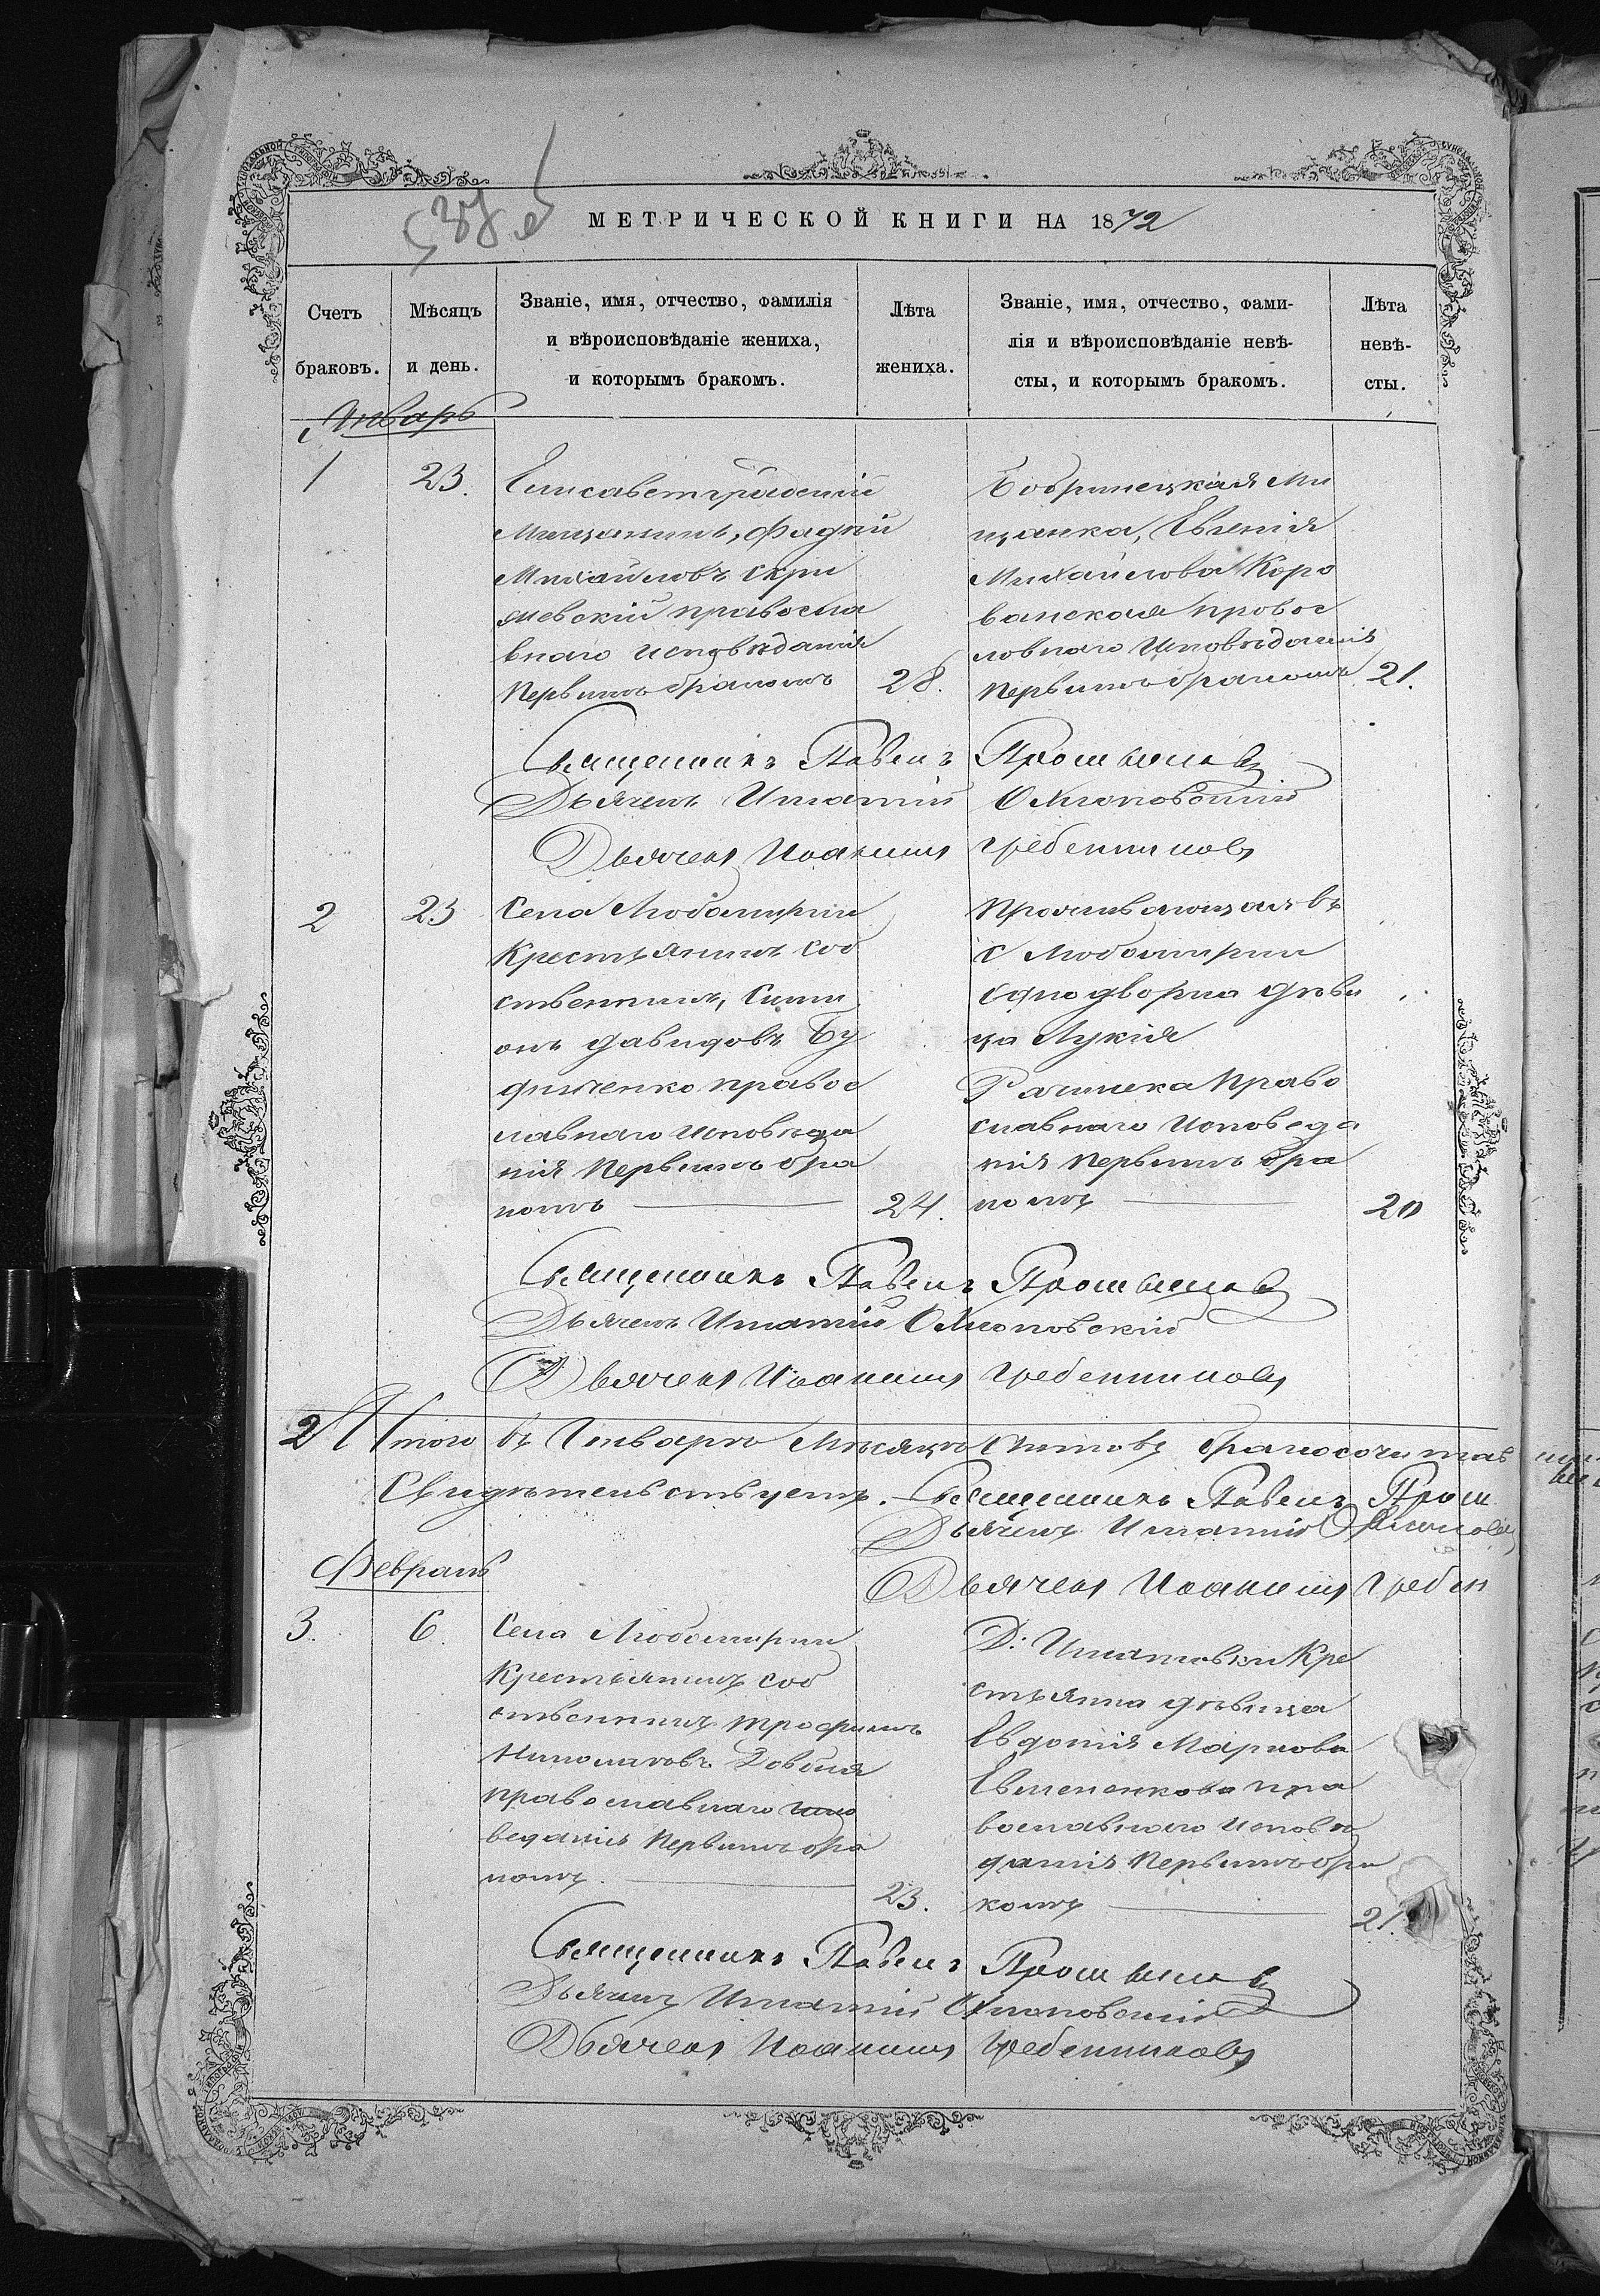 МЕТРИЧЕСКОЙ КНИГИ НА 1872
Счетъ
браковъ.
Мѣсяцъ
и день.
Званіе, имя, отчество, фамилія
и вѣроисповѣданіе жениха,
и которымъ бракомъ.
Лѣта
жениха.
Званіе, имя, отчество, фами-
лія и вѣроисповѣданіе невѣ-
сты, и которымъ бракомъ.
Лѣта
невѣ-
сты.
Январь
1
23.
Елисаветградскій
Мещанинъ, Фадей
Михайловъ Скри
невскій правосла
внаго исповѣданія
Первымъ бракомъ
28.
Бобринецкая Ме
щанка, Евгенія
Михайлова Коро
ванская провос
ловнаго Исповѣданія
Первымъ бракомъ
21.
Священникъ Павелъ
Дьячекъ Игнатій
Дьячекъ Иоакимъ Гребенниковъ
2
23
Села Любомирки
Крестьянинъ соб
ственникъ, Сими
онъ Давидовъ Бу
дниченко правос
лавнаго исповѣда
нія Первымъ бра
комъ
24.
Проживающая въ
С Любомирки
Однодворка дѣви
ца Лукія
Право
славнаго Исповеда
нія Первымъ бра
комъ
20
Священникъ Павелъ
Дьячекъ Игнатій
Дьячекъ Иоакимъ Гребенниковъ
2
Итого въ Генварѣ Мѣсяцѣ бракосочитав
Свидѣтельствуетъ. Священникъ Павелъ
Дьячекъ Игнатій
Дьячекъ Иоакимъ Гребен
Февраль
3.
6.
Села Любомирки
Крестьянинъ соб
ственникъ Трофимъ
Николаевъ Довбня
православнаго испо
веданія Первымъ бра
комъ.
23.
Д: Игнатовки Кре
стьянка дѣвица
Евдокія Маркова
Евмененкова пра
вославнаго исповѣ
данія Первымъ бра
комъ
21.
Священникъ Павелъ
Дьячекъ Игнатій
Дьячекъ Иоакимъ Гребенниковъ